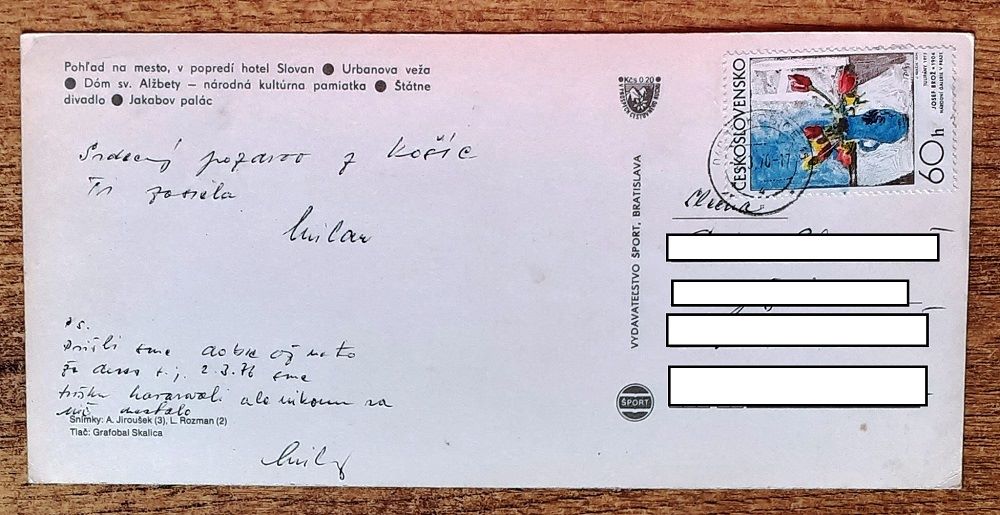 Pohľad na mesto, v popredí hotel Slovan ● Urbanova veža
● Dóm sv. Alžbety — národná kultúrna pamiatka ● Štátne
divadlo ● Jakabov palác
Srdečný pozdrav z Košíc
Ti zasiela
Milan
Ps.
Prišli sme dobre až na to
že dnes t.j. 2.3.76 sme
trišku havarovali ale nikomu sa
nič nestalo
Snímky: A. Jiroušek (3), L. Rozman (2)
Tlač: Grafobal Skalica
Kčs 0.20
VYDAVATEĽSTVO ŠPORT, BRATISLAVA
ŠPORT
ČESKOSLOVENSKO
60 h
JOSEF BROŽ * 1904
NÁRODNÍ GALERIE V PRAZE